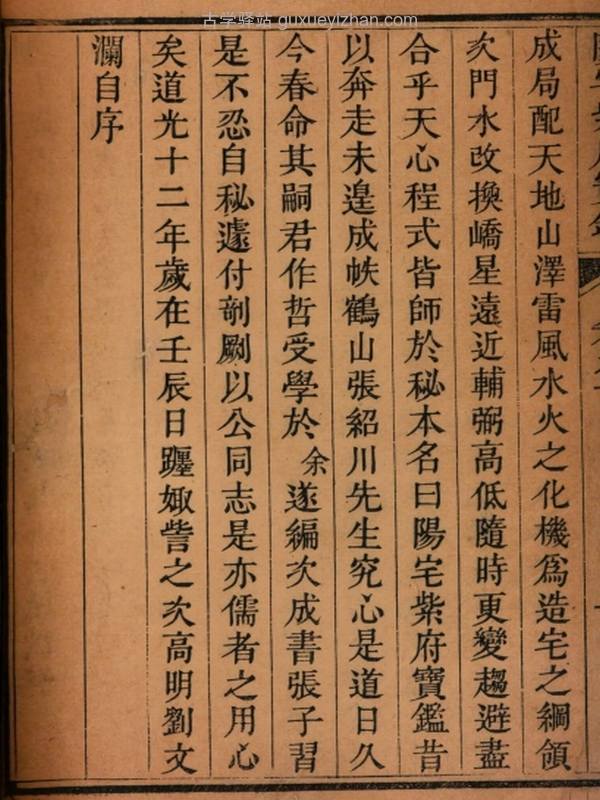 古学驿站 guxueyizhan.com
成局配天地山澤雷風水火之化機爲造宅之綱領
次門水改換嶠星遠近輔弼高低隨時更變趨避盡
合乎天心程式皆師於秘本名曰陽宅紫府寶鑑昔
以奔走未遑成帙鶴山張紹川先生究心是道日久
今春命其嗣君作哲受學於余遂編次成書張子習
是不忍自秘遽付剞劂以公同志是亦儒者之用心
矣道光十二年歲在壬辰日躔娵訾之次高明劉文
瀾自序